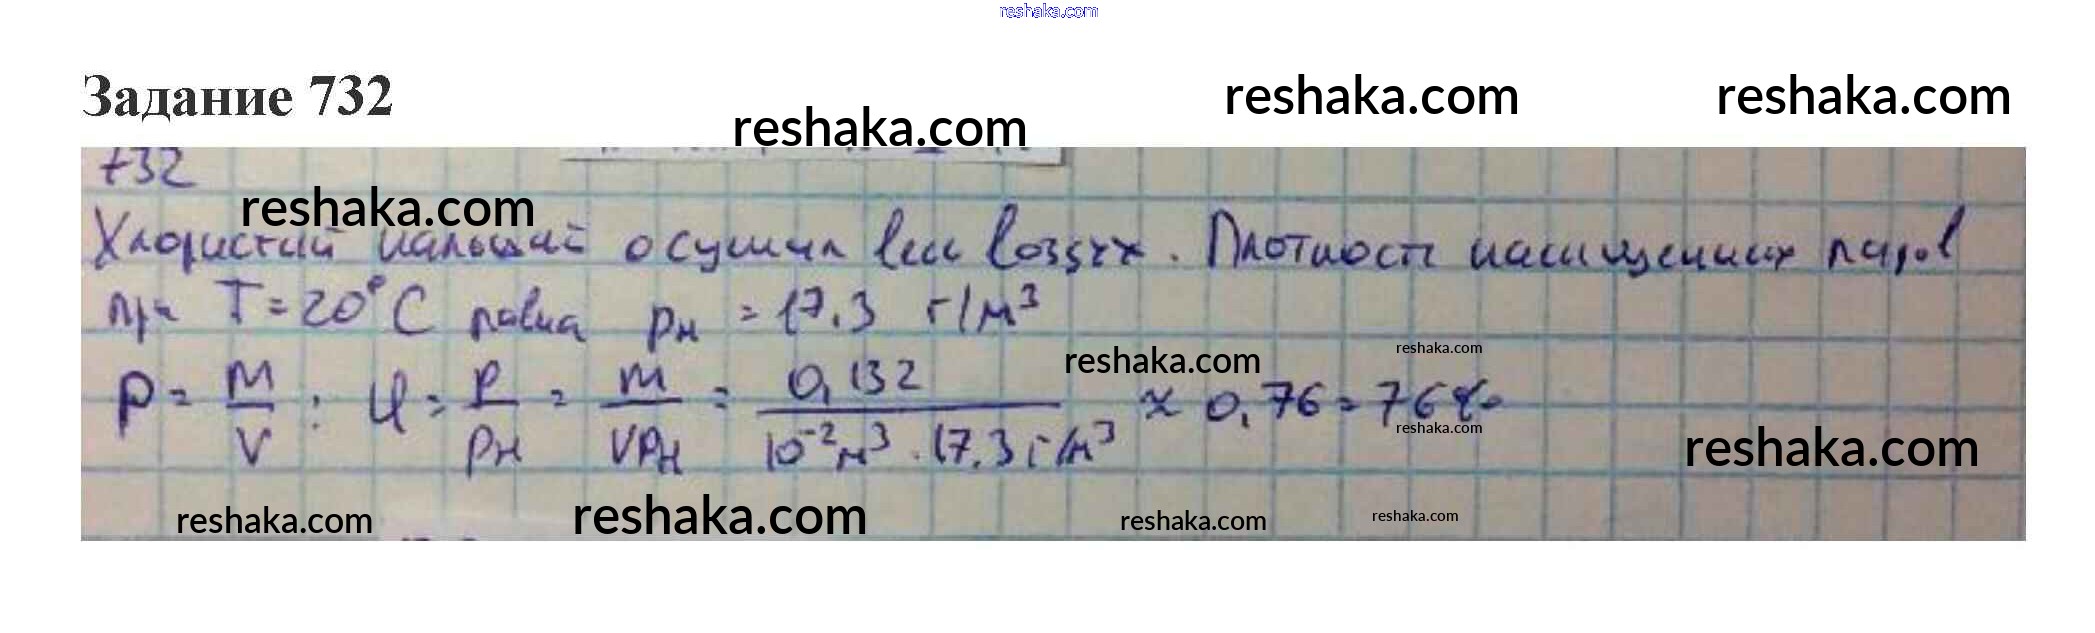 reshaka.com
Задание 732
reshaka.com reshaka.com reshaka.com
732
reshaka.com
Хлористый кальций осушил весь воздух. Плотность насыщенных паров
при T = 20°C равна ρн = 17.3 г/м³
reshaka.com reshaka.com
ρ = m/V ; φ = ρ/ρн = m/Vρн = 0,132/10⁻²м³ · 17,3 г/м³ ≈ 0,76 = 76%
reshaka.com reshaka.com
reshaka.com reshaka.com reshaka.com reshaka.com